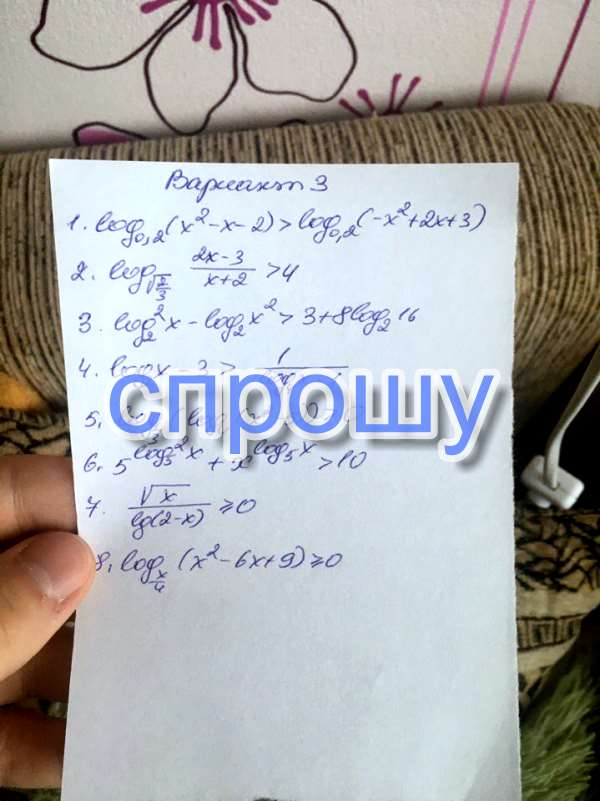 Вариант 3
1. log₀,₂(x²-x-2)>log₀,₂(-x²+2x+3)
2. log_√(2/3) (2x-3)/(x+2) >4
3. log₂²x-log₂x²>3+8log₂16
4.
спрошу
5.
6. 5^(log₅²x)+x^(log₅x)>10
7. √x/lg(2-x) ≥0
8. log_(x/4) (x²-6x+9)≥0